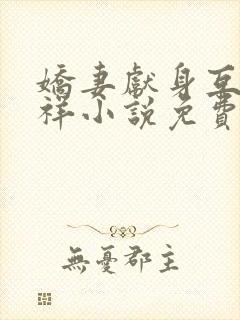 嬌妻獻身互
祥小說免費
無憂郡主